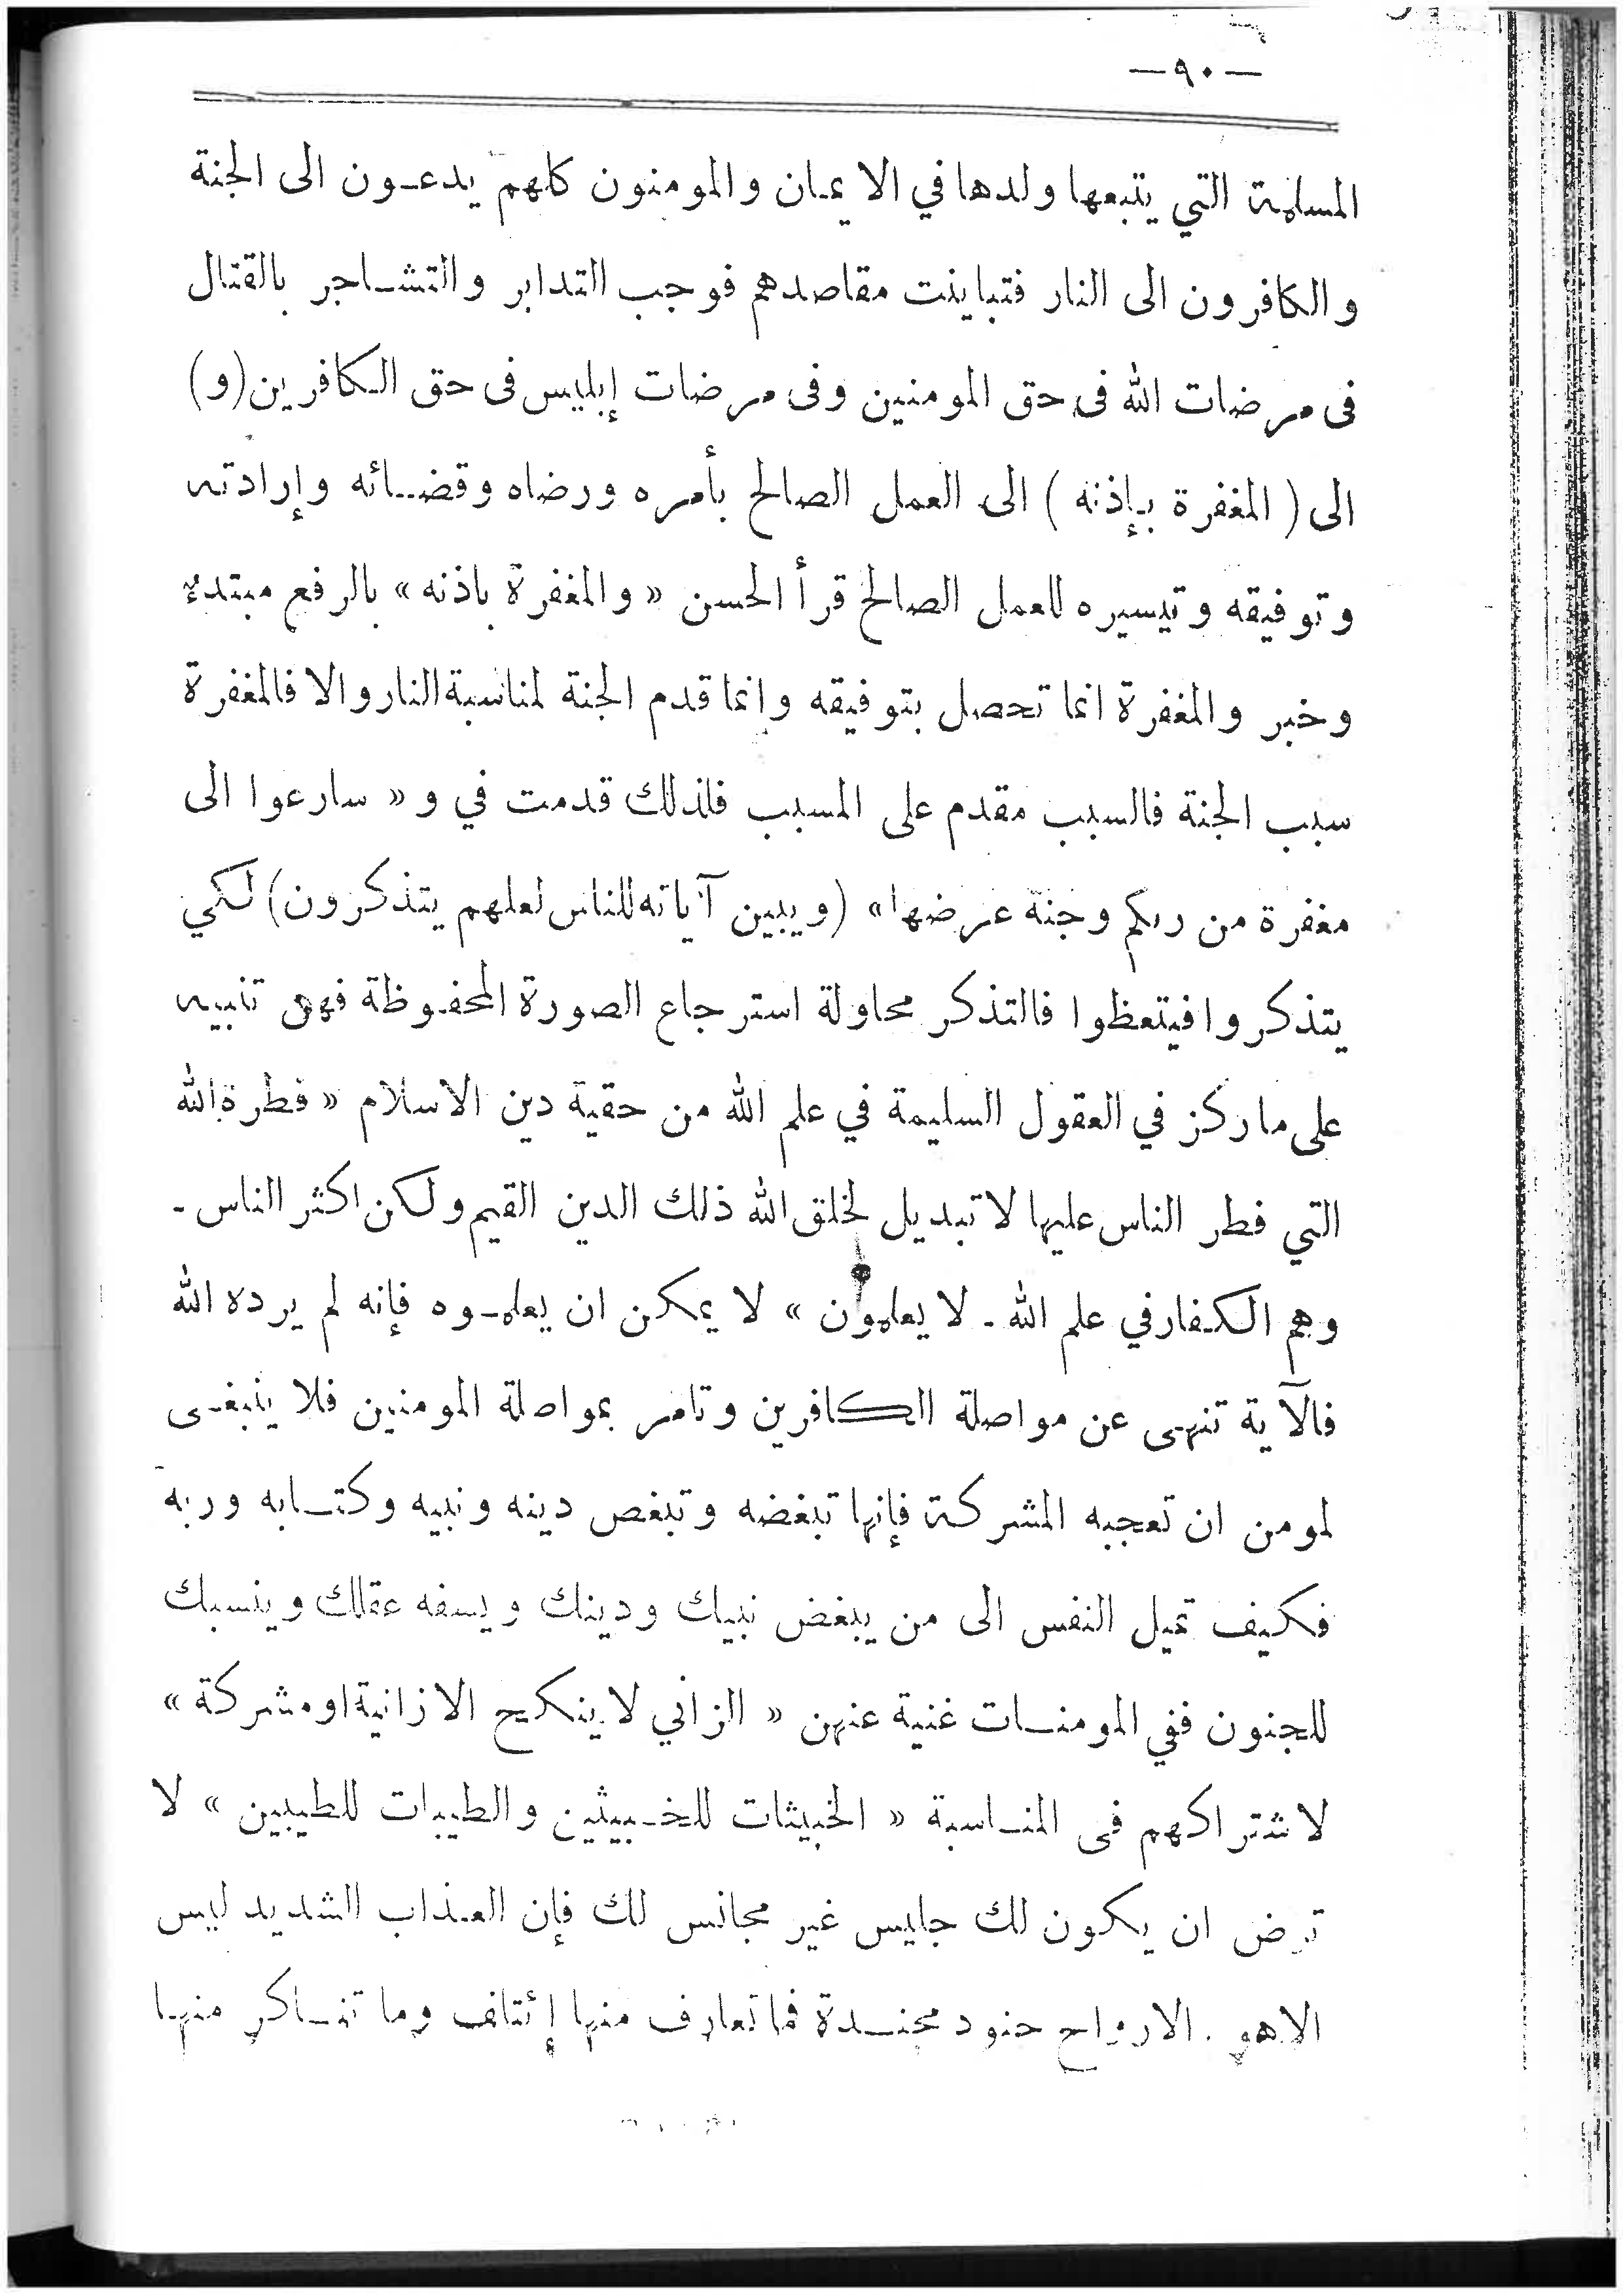 —٩٠—
المسلمة التي يتبعها ولدها في الايمان والمومنون كلهم يدعون الى الجنة
والكافرون الى النار فتباينت مقاصدهم فوجب التدابر والتشاجر بالقتال
فى مرضات الله فى حق المومنين وفى مرضات إبليس فى حق الكافرين (و)
الى ( المغفرة بإذنه ) الى العمل الصالح بأمره ورضاه وقضائه وإرادته
وتوفيقه وتيسيره للعمل الصالح قرأ الحسن « والمغفرة باذنه » بالرفع مبتدء
وخبر والمغفرة انما تحصل بتوفيقه وانما قدم الجنة لمناسبة النار والا فالمغفرة
سبب الجنة فالسبب مقدم على المسبب فلذلك قدمت في و « سارعوا الى
مغفرة من ربكم وجنة عرضها » (ويبين آياته للناس لعلهم يتذكرون) لكي
يتذكروا فيتعظوا فالتذكر محاولة استرجاع الصورة المحفوظة فهو تنبيه
على ما ركز في العقول السليمة في علم الله من حقية دين الاسلام « فطرة الله
التي فطر الناس عليها لا تبديل لخلق الله ذلك الدين القيم ولكن اكثر الناس -
وهم الكفار في علم الله - لا يعلمون » لا يمكن ان يعلموه فإنه لم يرده الله
فالآية تنهى عن مواصلة الكافرين وتامر بمواصلة المومنين فلا ينبغى
لمومن ان تعجبه المشركة فإنها تبغضه وتبغص دينه ونبيه وكتابه وربه
فكيف تميل النفس الى من يبغض نبيك ودينك ويسفه عقلك وينسبك
للجنون ففي المومنات غنية عنهن « الزاني لا ينكح الا زانية او مشركة »
لاشتراكهم فى المناسبة « الخبيثات للخبيثين والطيبات للطيبين » لا
ترض ان يكون لك جليس غير مجانس لك فإن العذاب الشديد ليس
الا هو . الارواح جنود مجندة فما تعارف منها إئتلف وما تناكر منها